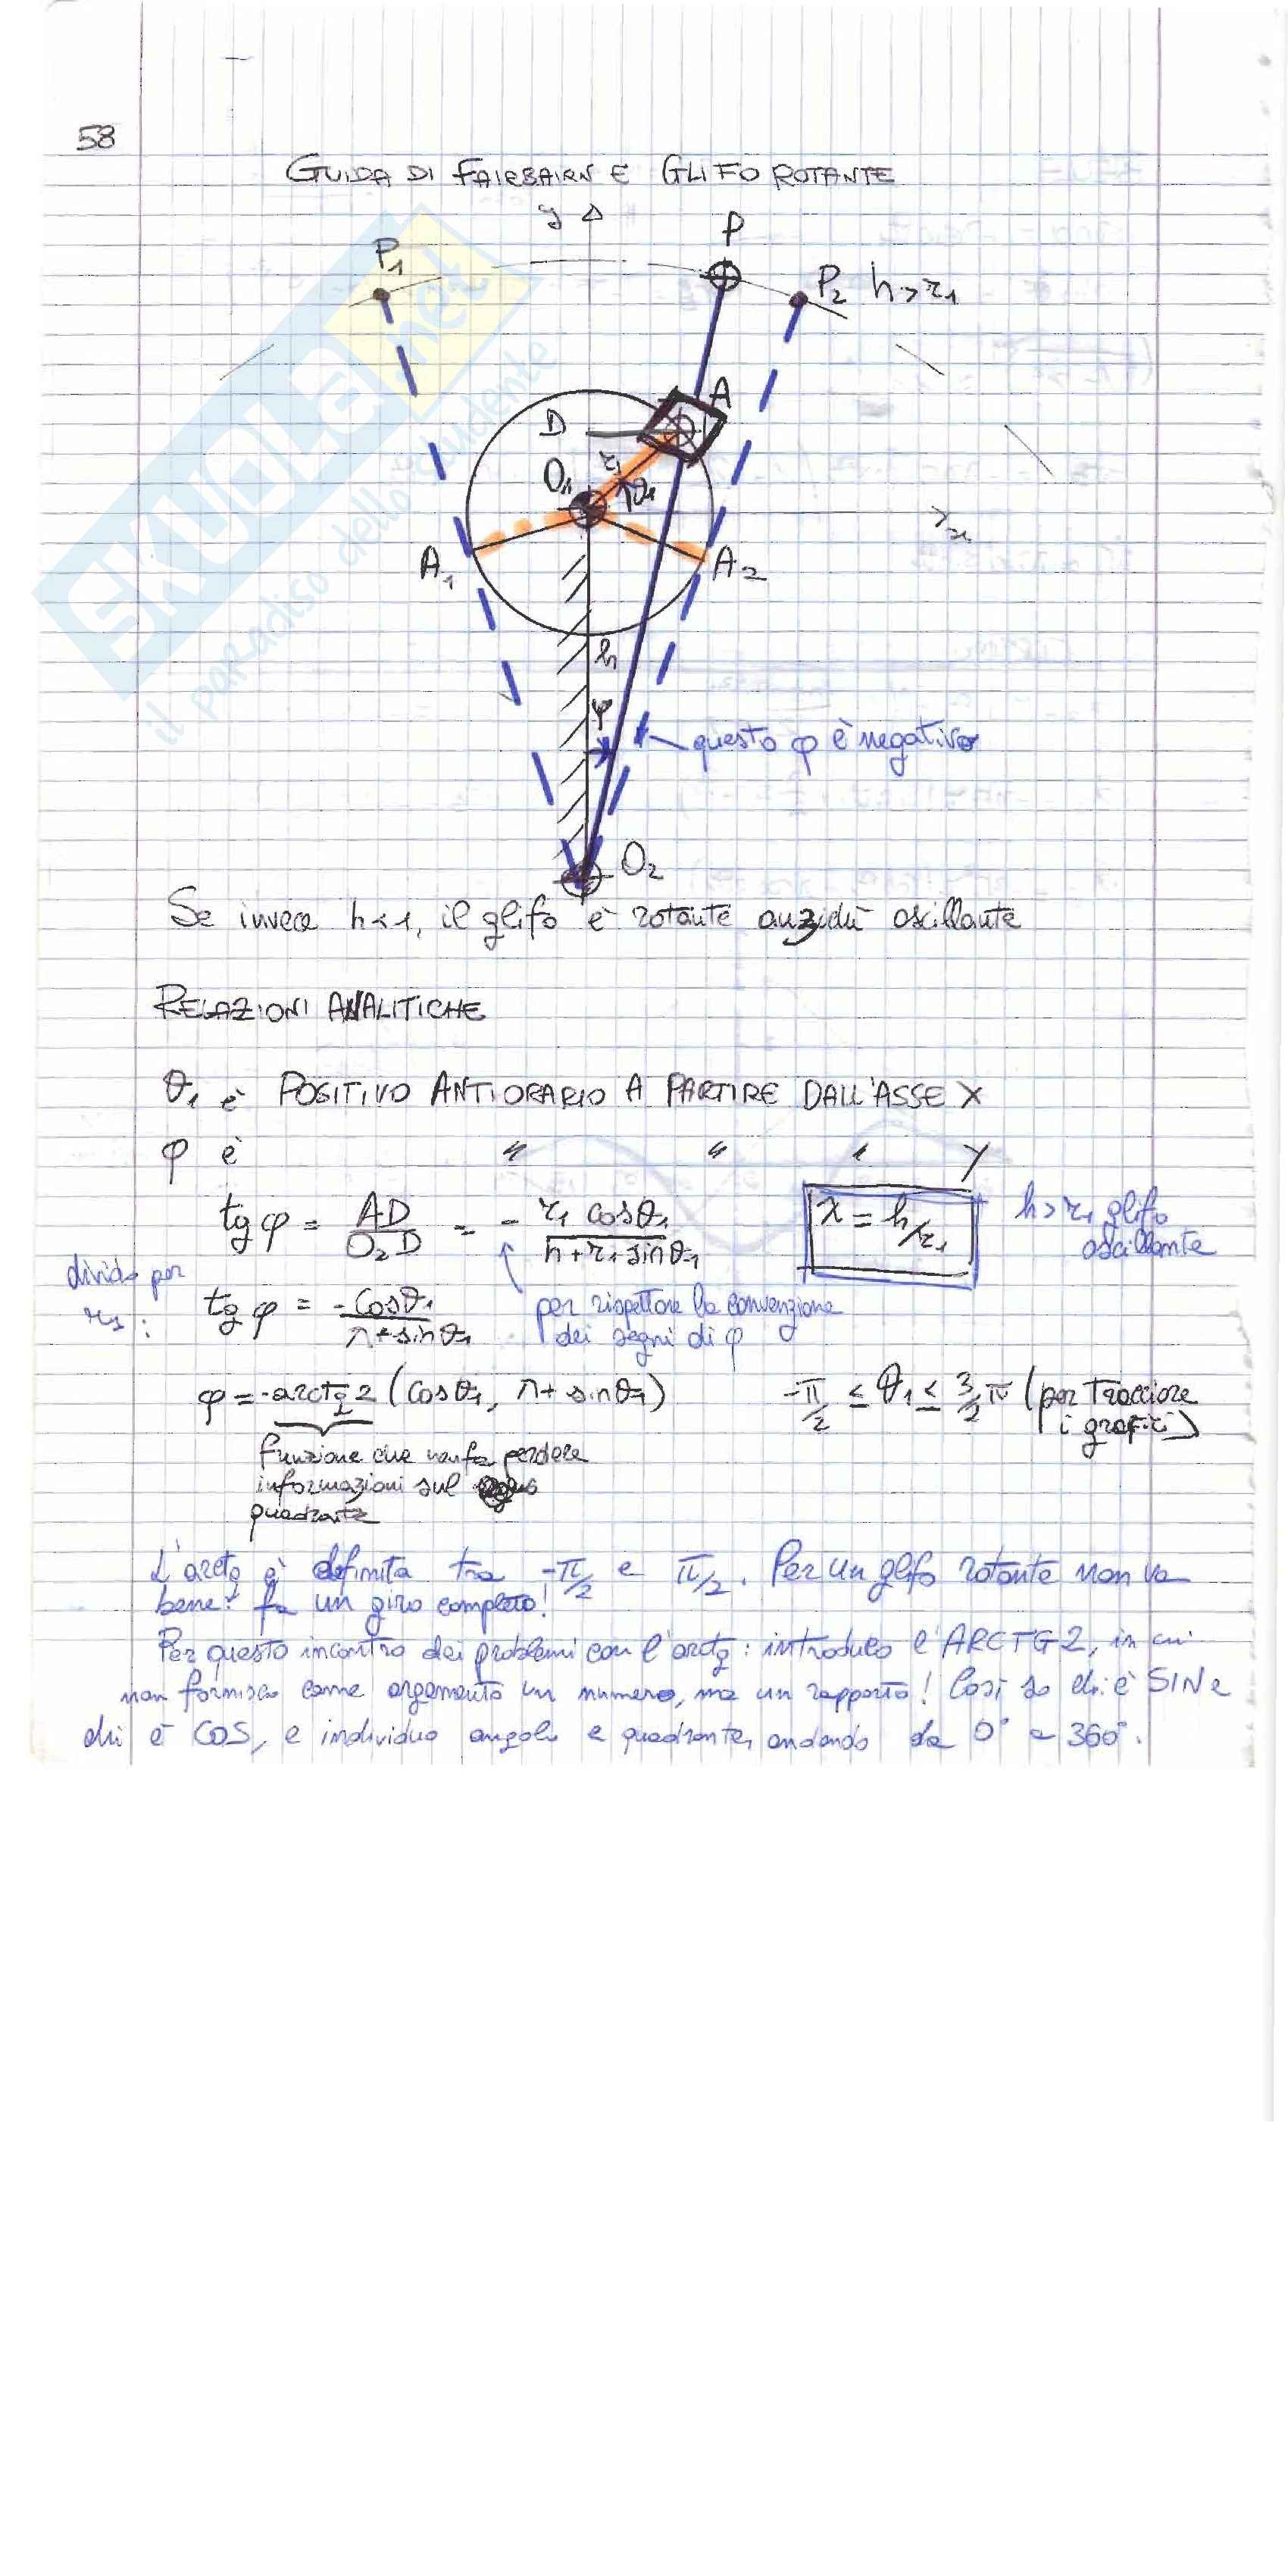 58
GUIDA DI FAIRBAIRN E GLIFO ROTANTE
y
P
P₁
P₂ h>r₁
A
D
O₁
r₁
θ₁
x
A₁
A₂
h
φ
questo φ è negativo
O₂
SKUOLA.net
il paradiso dello studente
Se invece h<1, il glifo è rotante anziché oscillante
RELAZIONI ANALITICHE
θ₁ è POSITIVO ANTIORARIO A PARTIRE DALL'ASSE X
φ è " " " Y
tg φ = AD/O₂D = - r₁ cosθ₁/h+r₁sinθ₁
λ = h/r₁
h>r₁ glifo
oscillante
divido per
r₁:
tg φ = -cosθ₁/λ+sinθ₁
per rispettare la convenzione
dei segni di φ
φ = -arctg2 (cosθ₁, λ+sinθ₁)
-π/2 ≤ θ₁ ≤ 3/2 π (per tracciare
i grafici)
funzione che non fa perdere
informazioni sul
quadrante
L'arctg è definita tra -π/2 e π/2. Per un glifo rotante non va
bene: fa un giro completo!
Per questo incontro dei problemi con l'arctg: introduco l'ARCTG2, in cui
non fornisco come argomento un numero, ma un rapporto! Così so chi è SIN e
chi è COS, e individuo angolo e quadrante, andando da 0° a 360°.